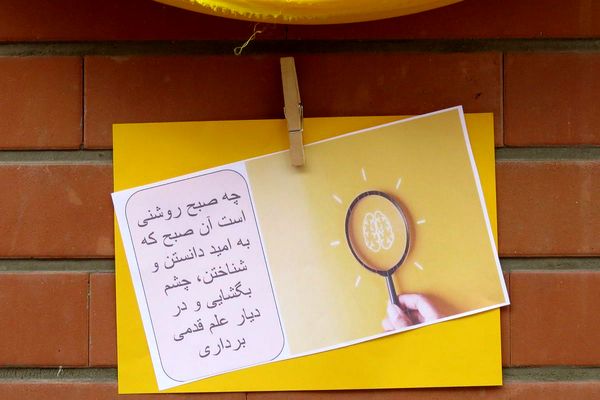 چه صبح روشنی
است آن صبح که
به امید دانستن و
شناختن، چشم
بگشایی و در
دیار علم قدمی
برداری